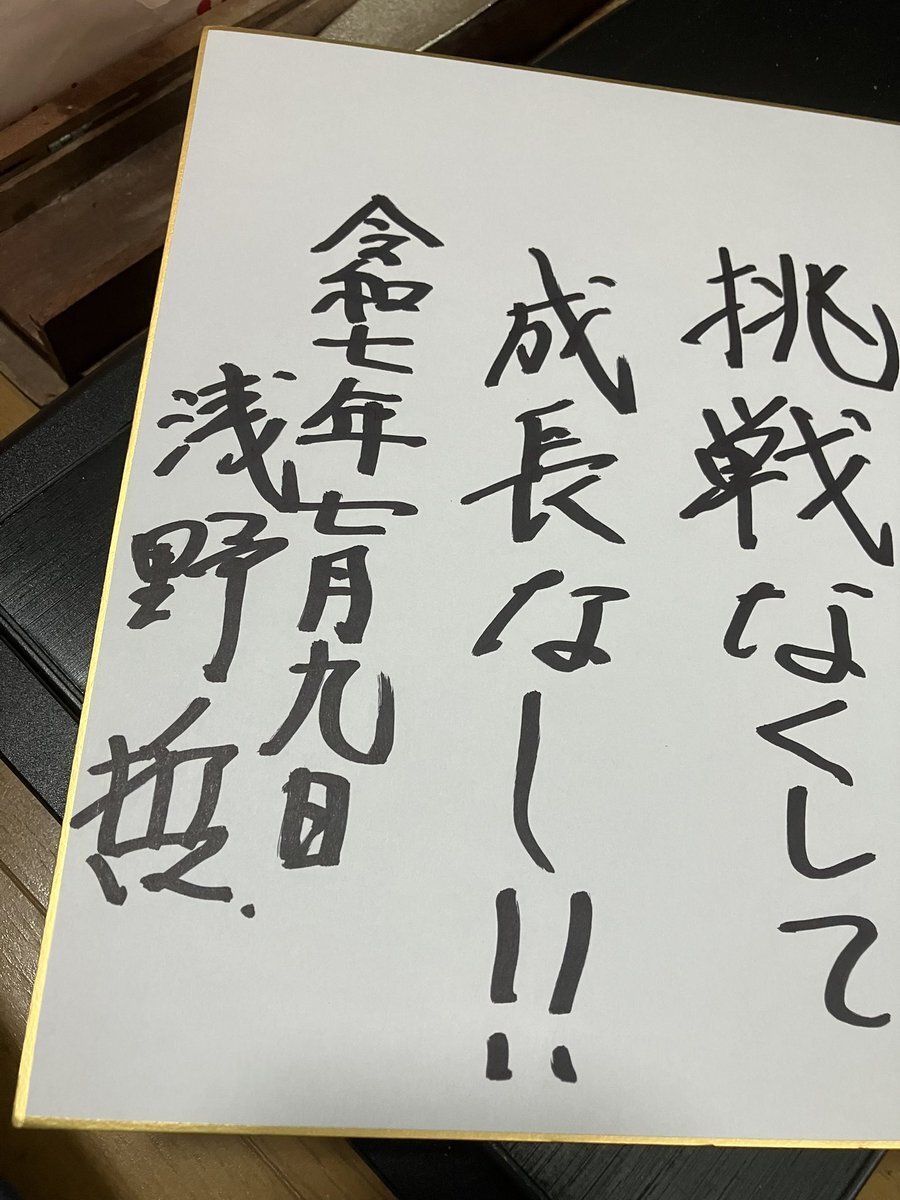 挑戦なくして
成長なし!!
令和七年七月九日
浅野哲